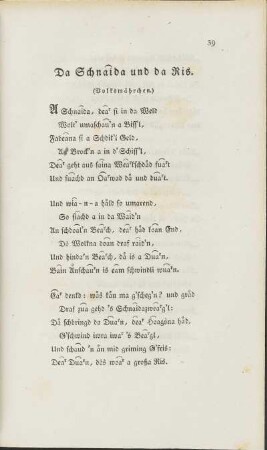 39
Da Schnaida und da Ris.
(Volksmährchen.)
A Schnaida, dea' si in da Wold
Weit' umaschau'n a Biss'l,
Fodeana si a Schdit'l Geld.
Brock'n a in d' Schiss'l,
Dea' geht aus saina Wea'kschdåd fua't
Und suachd an Oa'wad då und dua't.
Und wia-n-a håld so umarend,
So siachd a in da Waid'n
An schdoal'n Bea'ch, dea' håd koan End,
Dö Wolkna doan draf raid'n,
Und hinda'n Bea'ch, då is a Dua'n,
Bain Anschau'n is eam schwindli wua'n.
Ea' denkt: wås kån ma g'scheg'n? und gråd
Draf zua gehd 's Schnaidazwea'g'l:
Då schbringd da Dua'n, dea' Hoagåna håd,
G'schwind iwra iwa' 's Bea'gl,
Und schaud 'n ån mid griming G'fris:
Dea' Dua'n, dös woa' a großa Ris.